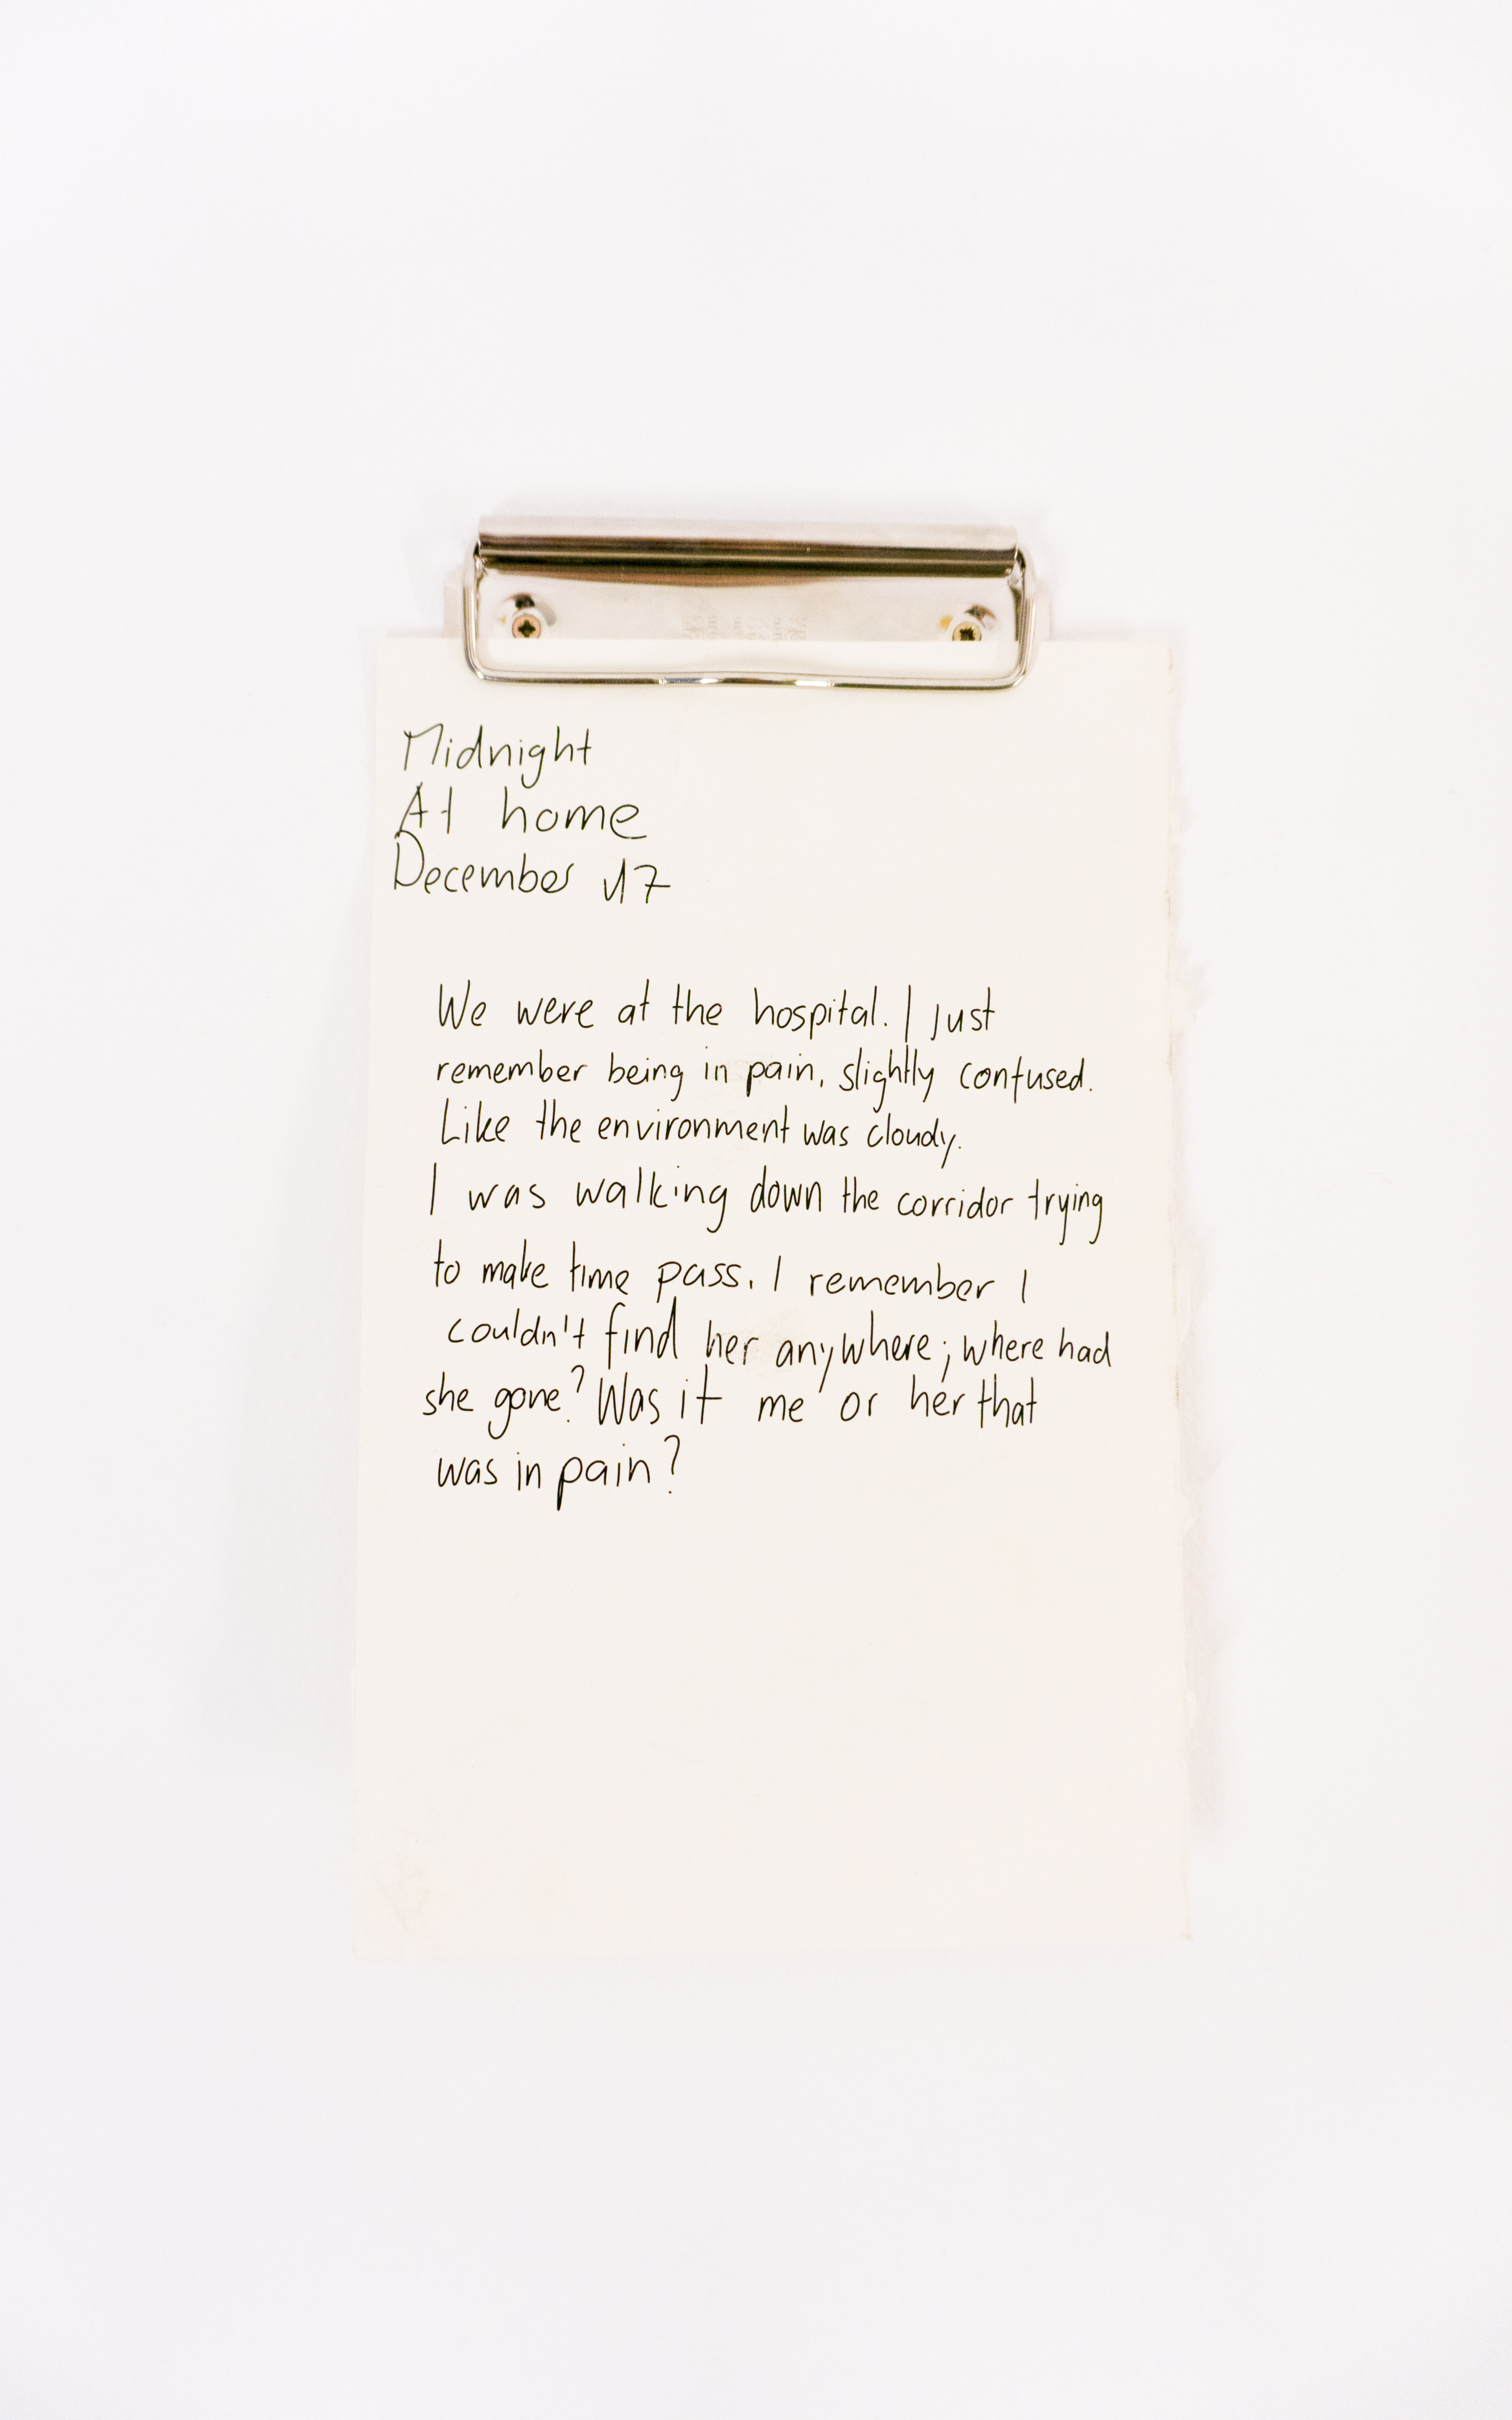 Midnight
At home
December 17
We were at the hospital. I just
remember being in pain, slightly confused.
Like the environment was cloudy.
I was walking down the corridor trying
to make time pass. I remember I
couldn't find her anywhere; where had
she gone? Was it me or her that
was in pain?